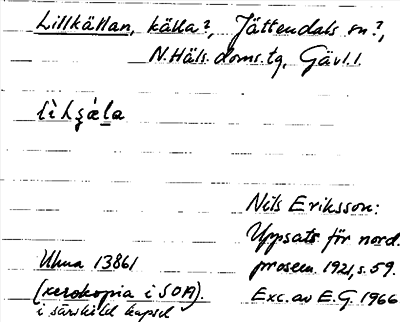 Lillkällan, källa?, Jättendals sn?,
N.Häls. doms.tg, Gävl.l.
Nils Eriksson:
Uppsats för nord.
Uluna 13861
prosem. 1921, s. 59.
(xerokopia i SOA).
Exc. av E.G. 1966
i särskild kapsel